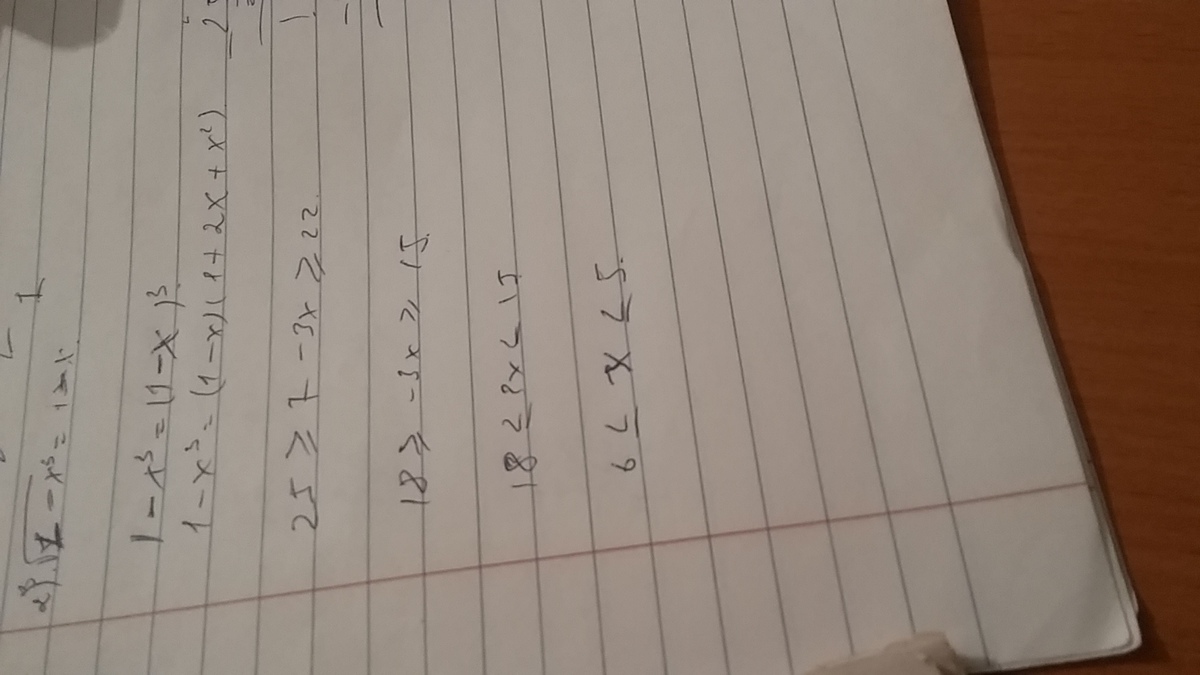 1 - x³ = (1 - x)³
1 - x³ = (1 - x)(1 + 2x + x²)
25 ≥ 7 - 3x ≥ 22
18 ≥ -3x ≥ 15
18 ≤ 3x ≤ 15
6 ≤ x ≤ 5.